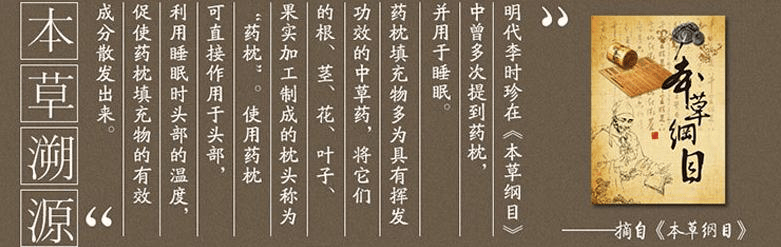 本草纲目
——摘自《本草纲目》
”
明代李时珍在《本草纲目》
中曾多次提到药枕，
并用于睡眠。
药枕填充物多为具有挥发
功效的中草药，将它们
的根、茎、花、叶子、
果实加工制成的枕头称为
“药枕”。使用药枕
可直接作用于头部，
利用睡眠时头部的温度，
促使药枕填充物的有效
成分散发出来。
“
本草溯源